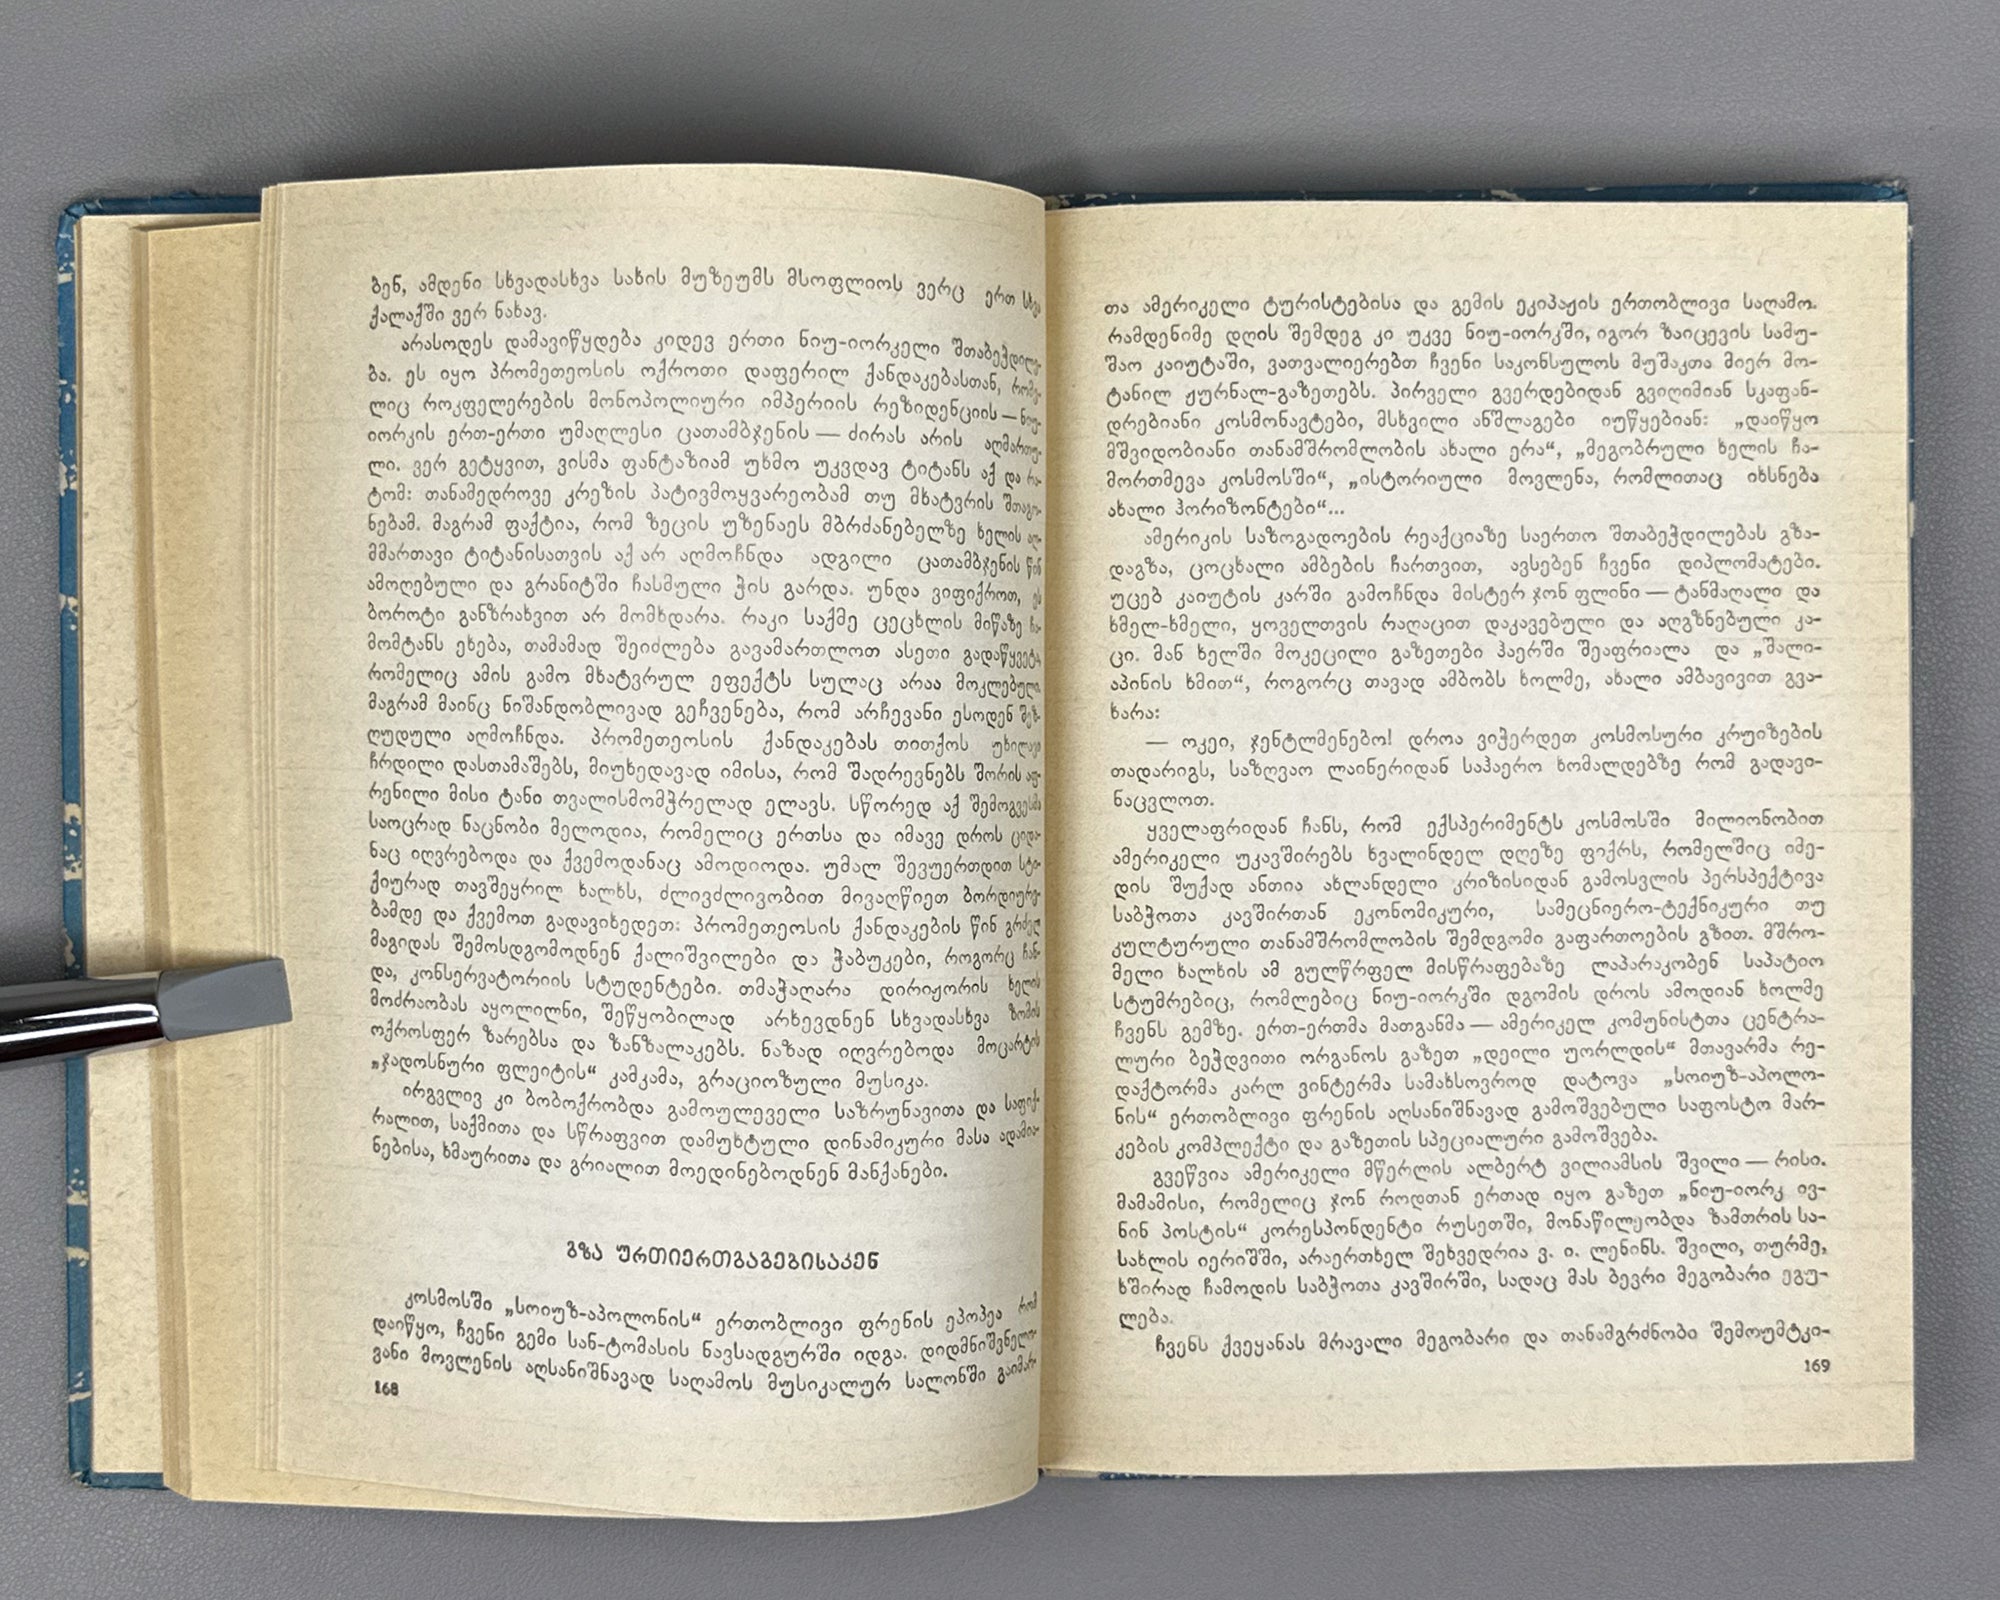 ბენ, ამდენი სხვადასხვა სახის მუზეუმს მსოფლიოს ვერც ერთ სხვა
ქალაქში ვერ ნახავ.
არასოდეს დამავიწყდება კიდევ ერთი ნიუ-იორკელი შთაბეჭდილე-
ბა. ეს იყო პრომეთეოსის ოქროთი დაფერილ ქანდაკებასთან, რომე-
ლიც როკფელერების მონოპოლიური იმპერიის რეზიდენციის — ნიუ-
იორკის ერთ-ერთი უმაღლესი ცათამბჯენის — ძირას არის აღმართუ-
ლი. ვერ გეტყვით, ვისმა ფანტაზიამ უხმო უკვდავ ტიტანს აქ და რა-
ტომ: თანამედროვე კრეზის პატივმოყვარეობამ თუ მხატვრის შთაგო-
ნებამ. მაგრამ ფაქტია, რომ ზეცის უზენაეს მბრძანებელზე ხელის აღ-
მმართავი ტიტანისათვის აქ არ აღმოჩნდა ადგილი ცათამბჯენის წინ
ამოღებული და გრანიტში ჩასმული ჭის გარდა. უნდა ვიფიქროთ, ეს
ბოროტი განზრახვით არ მომხდარა. რაკი საქმე ცეცხლის მიწაზე ჩა-
მომტანს ეხება, თამამად შეიძლება გავამართლოთ ასეთი გადაწყვეტა,
რომელიც ამის გამო მხატვრულ ეფექტს სულაც არაა მოკლებული.
მაგრამ მაინც ნიშანდობლივად გეჩვენება, რომ არჩევანი ესოდენ შეზ-
ღუდული აღმოჩნდა. პრომეთეოსის ქანდაკებას თითქოს უხილავი
ჩრდილი დასთამაშებს, მიუხედავად იმისა, რომ შადრევნებს შორის აფ-
რენილი მისი ტანი თვალისმომჭრელად ელავს. სწორედ აქ შემოგვესმა
საოცრად ნაცნობი მელოდია, რომელიც ერთსა და იმავე დროს ციდა-
ნაც იღვრებოდა და ქვემოდანაც ამოდიოდა. უმალ შევუერთდით სტი-
ქიურად თავშეყრილ ხალხს, ძლივძლივობით მივაღწიეთ ბორდიურე-
ბამდე და ქვემოთ გადავიხედეთ: პრომეთეოსის ქანდაკების წინ გრძელ
მაგიდას შემოსდგომოდნენ ქალიშვილები და ჭაბუკები, როგორც ჩან-
და, კონსერვატორიის სტუდენტები. თმაჭაღარა დირიჟორის ხელის
მოძრაობას აყოლილნი, შეწყობილად არხევდნენ სხვადასხვა ზომის
ოქროსფერ ზარებსა და ზანზალაკებს. ნაზად იღვრებოდა მოცარტის
„ჯადოსნური ფლეიტის“ კამკამა, გრაციოზული მუსიკა.
ირგვლივ კი ბობოქრობდა გამოულეველი საზრუნავითა და საფიქ-
რალით, საქმითა და სწრაფვით დამუხტული დინამიკური მასა ადამია-
ნებისა, ხმაურითა და გრიალით მოედინებოდნენ მანქანები.
გზა ურთიერთგაგებისაკენ
კოსმოსში „სოიუზ-აპოლონის“ ერთობლივი ფრენის ეპოპეა რომ
დაიწყო, ჩვენი გემი სან-ტომასის ნავსადგურში იდგა. დიდმნიშვნელო-
ვანი მოვლენის აღსანიშნავად საღამოს მუსიკალურ სალონში გაიმარ-
168
თა ამერიკელი ტურისტებისა და გემის ეკიპაჟის ერთობლივი საღამო.
რამდენიმე დღის შემდეგ კი უკვე ნიუ-იორკში, იგორ ზაიცევის სამუ-
შაო კაიუტაში, ვათვალიერებთ ჩვენი საკონსულოს მუშაკთა მიერ მო-
ტანილ ჟურნალ-გაზეთებს. პირველი გვერდებიდან გვიღიმიან სკაფან-
დრებიანი კოსმონავტები, მსხვილი ანშლაგები იუწყებიან: „დაიწყო
მშვიდობიანი თანამშრომლობის ახალი ერა“, „მეგობრული ხელის ჩა-
მორთმევა კოსმოსში“, „ისტორიული მოვლენა, რომლითაც იხსნება
ახალი ჰორიზონტები“...
ამერიკის საზოგადოების რეაქციაზე საერთო შთაბეჭდილებას გზა-
დაგზა, ცოცხალი ამბების ჩართვით, ავსებენ ჩვენი დიპლომატები.
უცებ კაიუტის კარში გამოჩნდა მისტერ ჯონ ფლინი — ტანმაღალი და
ხმელ-ხმელი, ყოველთვის რაღაცით დაკავებული და აღგზნებული კა-
ცი. მან ხელში მოკეცილი გაზეთები ჰაერში შეაფრიალა და „შალი-
აპინის ხმით“, როგორც თავად ამბობს ხოლმე, ახალი ამბავივით გვა-
ხარა:
— ოკეი, ჯენტლმენებო! დროა ვიჭერდეთ კოსმოსური კრუიზების
თადარიგს, საზღვაო ლაინერიდან საჰაერო ხომალდებზე რომ გადავი-
ნაცვლოთ.
ყველაფრიდან ჩანს, რომ ექსპერიმენტს კოსმოსში მილიონობით
ამერიკელი უკავშირებს ხვალინდელ დღეზე ფიქრს, რომელშიც იმე-
დის შუქად ანთია ახლანდელი კრიზისიდან გამოსვლის პერსპექტივა
საბჭოთა კავშირთან ეკონომიკური, სამეცნიერო-ტექნიკური თუ
კულტურული თანამშრომლობის შემდგომი გაფართოების გზით. მშრო-
მელი ხალხის ამ გულწრფელ მისწრაფებაზე ლაპარაკობენ საპატიო
სტუმრებიც, რომლებიც ნიუ-იორკში დგომის დროს ამოდიან ხოლმე
ჩვენს გემზე. ერთ-ერთმა მათგანმა — ამერიკელ კომუნისტთა ცენტრა-
ლური ბეჭდვითი ორგანოს გაზეთ „დეილი უორლდის“ მთავარმა რე-
დაქტორმა კარლ ვინტერმა სამახსოვროდ დატოვა „სოიუზ-აპოლო-
ნის“ ერთობლივი ფრენის აღსანიშნავად გამოშვებული საფოსტო მარ-
კების კომპლექტი და გაზეთის სპეციალური გამოშვება.
გვეწვია ამერიკელი მწერლის ალბერტ ვილიამსის შვილი — რისი.
მამამისი, რომელიც ჯონ როდთან ერთად იყო გაზეთ „ნიუ-იორკ ივ-
ნინ პოსტის“ კორესპონდენტი რუსეთში, მონაწილეობდა ზამთრის სა-
სახლის იერიშში, არაერთხელ შეხვედრია ვ. ი. ლენინს. შვილი, თურმე,
ხშირად ჩამოდის საბჭოთა კავშირში, სადაც მას ბევრი მეგობარი ეგუ-
ლება.
ჩვენს ქვეყანას მრავალი მეგობარი და თანამგრძნობი შემოუმტკი-
169